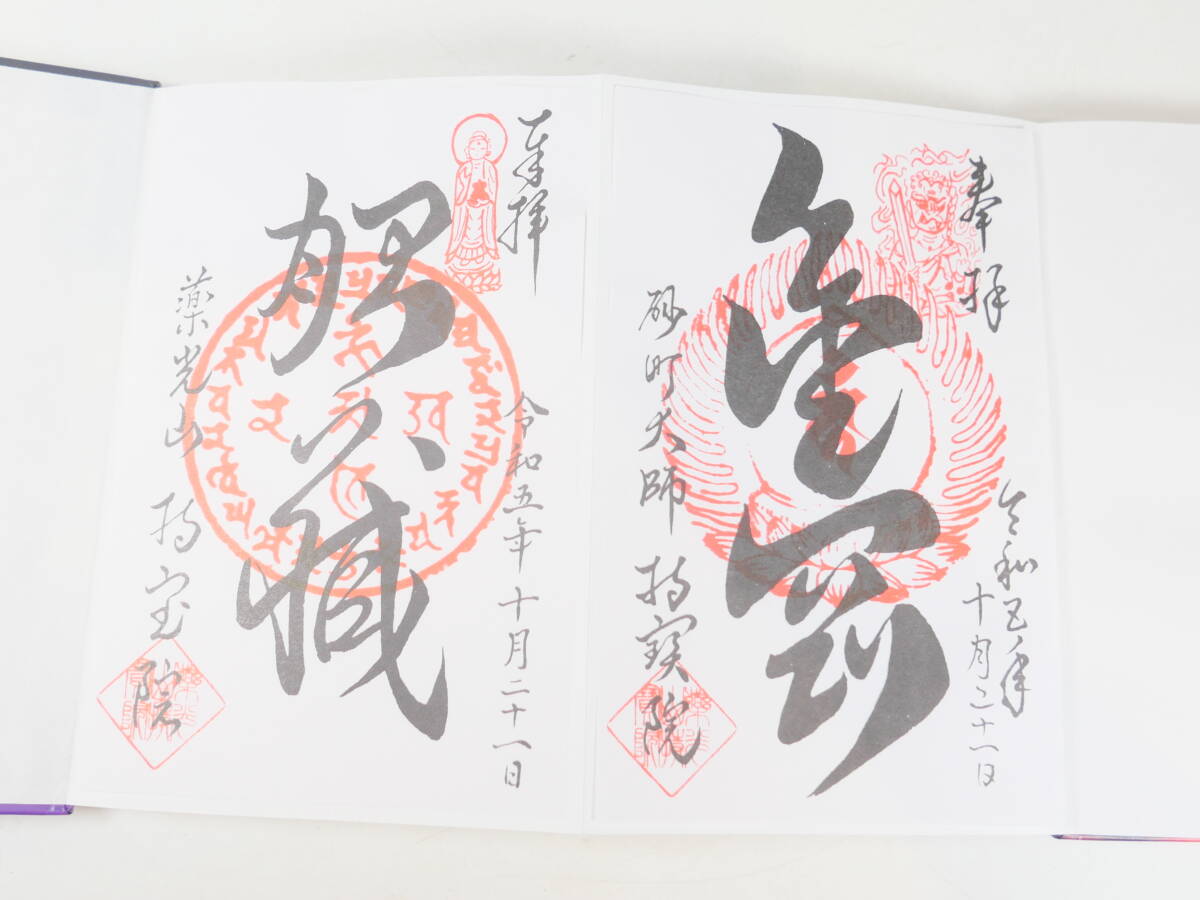 奉拝
令和五年
十月二十一日
金剛
砂町大師 持寳院
奉拝
令和五年 十月二十一日
胎蔵
薬光山 持宝院